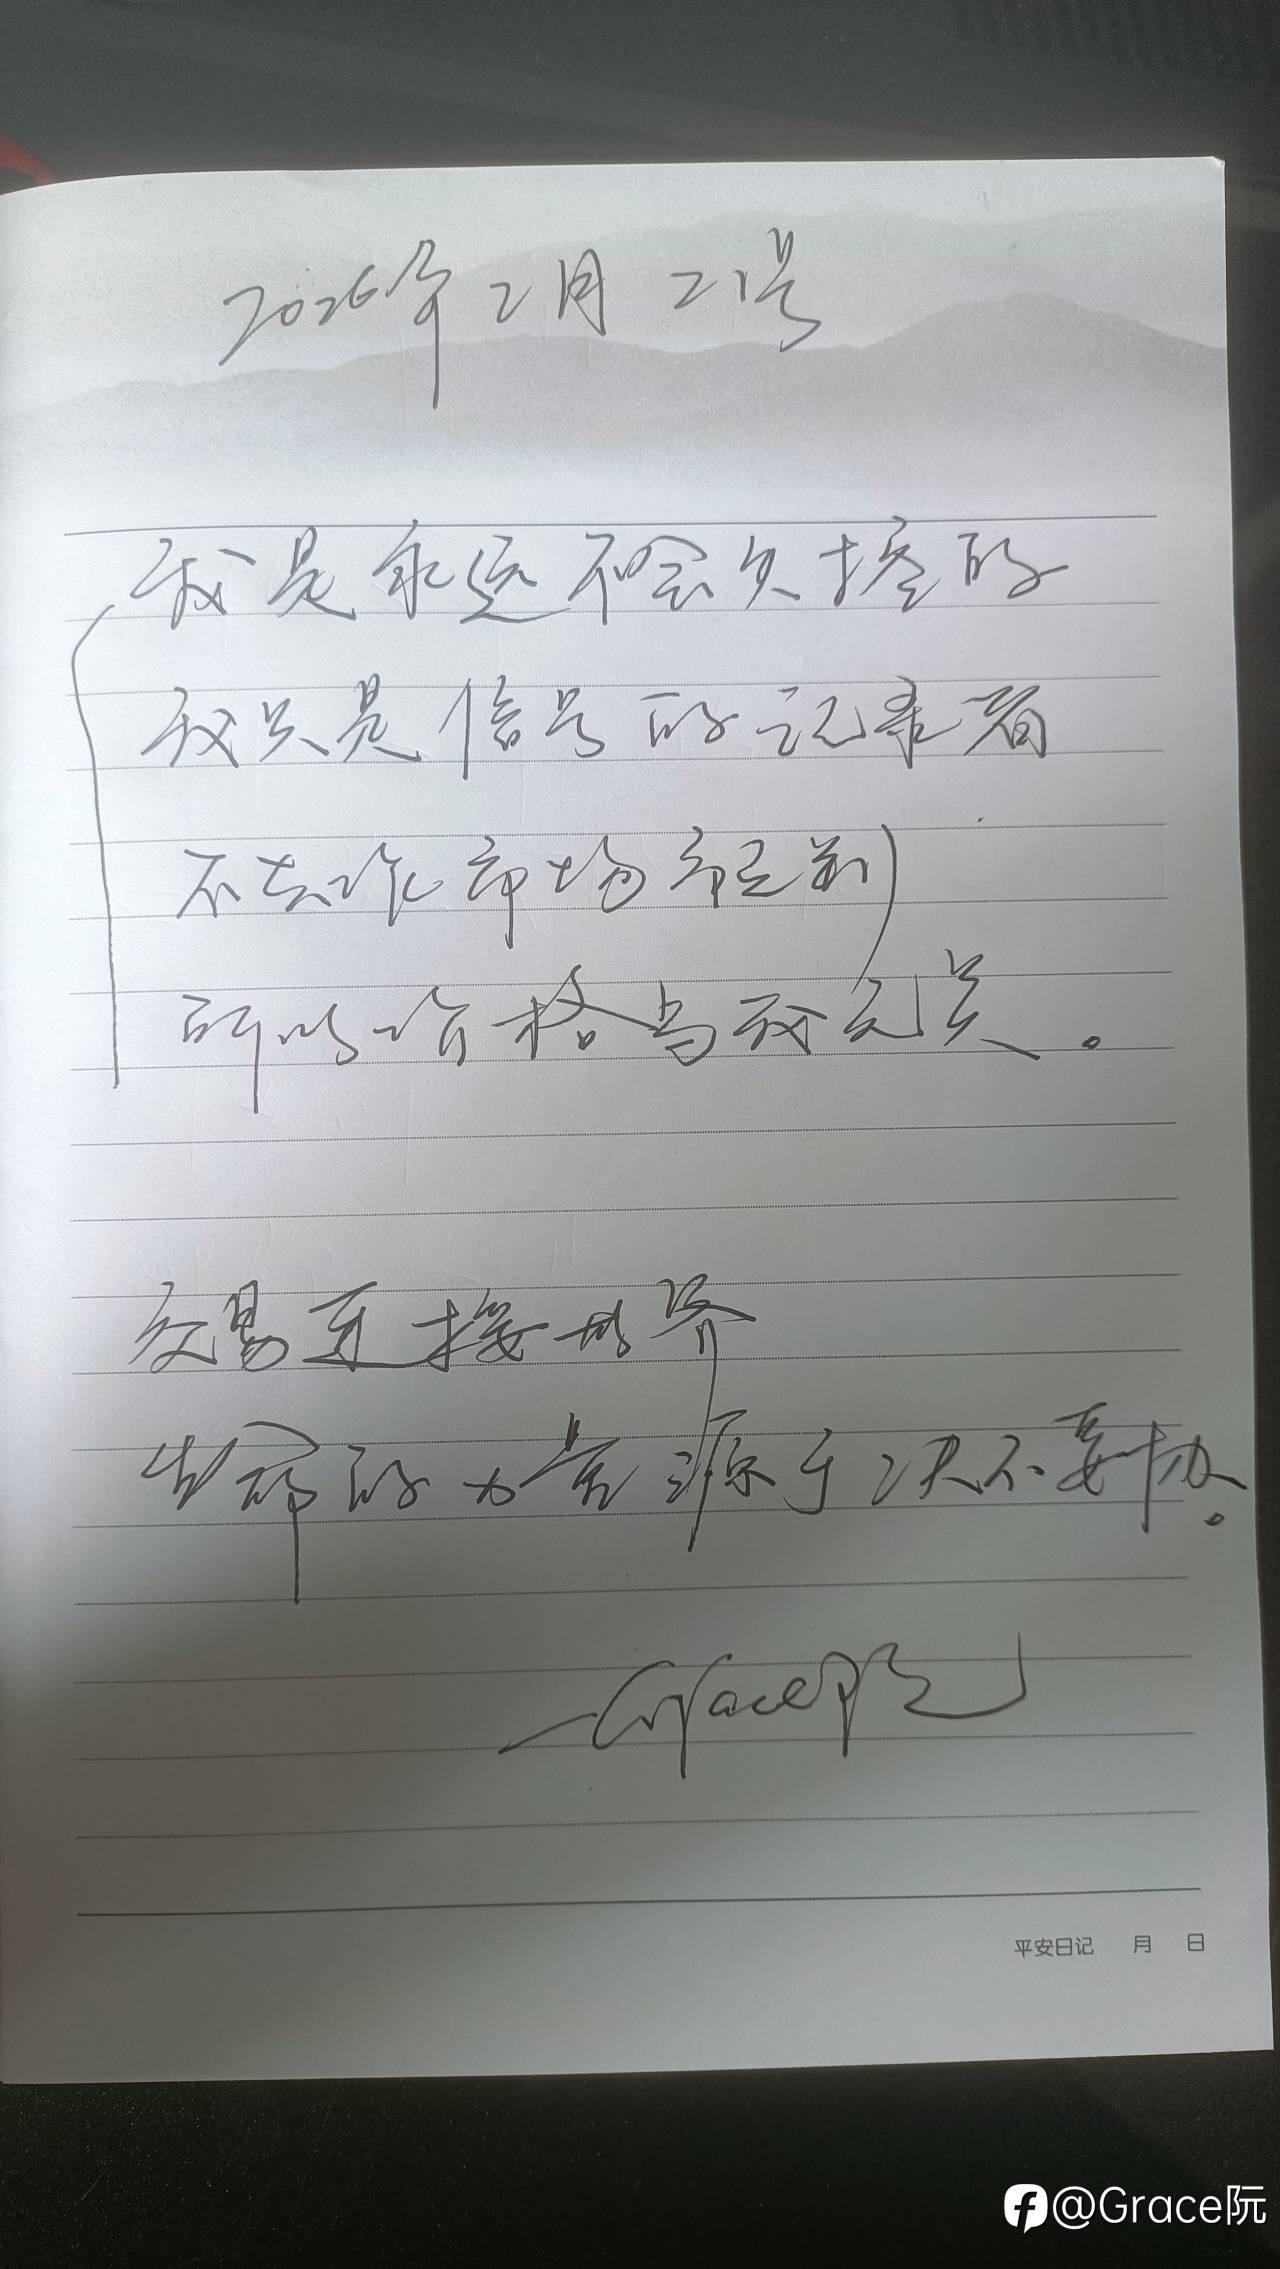 2026年2月21号
我是永远不会失控的
我只是信号的记录者
不去作市场预判
所以价格与我无关。
交易连接世界
生命的力量源于决不妥协。
—Grace阮
平安日记 月 日
@Grace阮